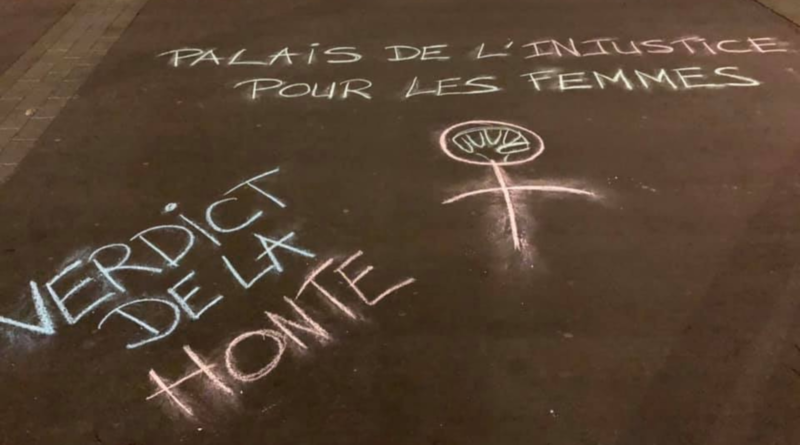 PALAIS DE L'INJUSTICE
POUR LES FEMMES
VERDICT
DE LA
HONTE